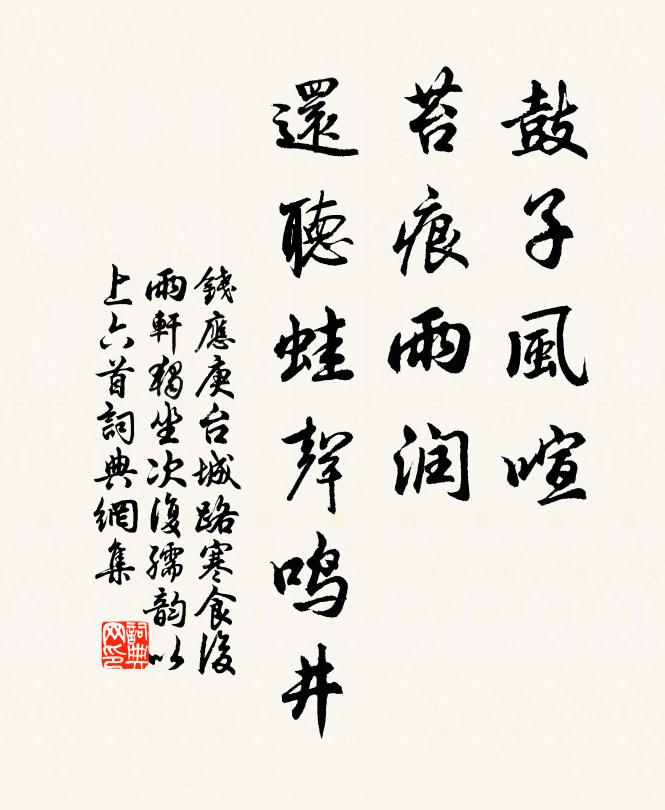 鼓子風喧
苔痕雨润
還聽蛙聲鸣井
錢應庚台城路寒食後
雨軒獨坐次復孺韵以
上六首詞典網集
詞典网印